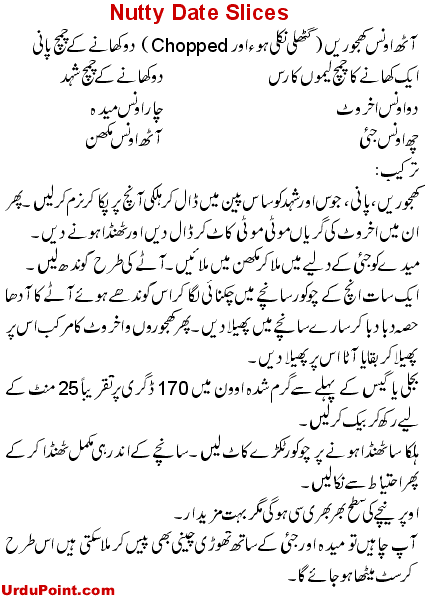 Nutty Date Slices
آٹھ اونس کھجوریں (گٹھلی نکلی ہوء اور Chopped) دو کھانے کے چمچ پانی
ایک کھانے کا چمچ لیموں کا رس دو کھانے کے چمچ شہد
دو اونس اخروٹ چار اونس میدہ
چھ اونس جئی آٹھ اونس مکھن
ترکیب:
کھجوریں، پانی، جوس اور شہد کو ساس پین میں ڈال کر ہلکی آنچ پر پکا کر نرم کر لیں۔ پھر
ان میں اخروٹ کی گریاں موٹی موٹی کاٹ کر ڈال دیں اور ٹھنڈا ہونے دیں۔
میدے کو جئی کے دلیے میں ملا کر مکھن میں ملائیں۔ آٹے کی طرح گوندھ لیں۔
ایک سات انچ کے چوکور سانچے میں چکنائی لگا کر اس گوندھے ہوئے آٹے کا آدھا
حصہ دبا دبا کر سارے سانچے میں پھیلا دیں۔ پھر کھجوروں و اخروٹ کا مرکب اس پر
پھیلا کر بقایا آٹا اس پر پھیلا دیں۔
بجلی یا گیس کے پہلے سے گرم شدہ اوون میں 170 ڈگری پر تقریباً 25 منٹ کے
لیے رکھ کر بیک کر لیں۔
ہلکا سا ٹھنڈا ہونے پر چوکور ٹکڑے کاٹ لیں۔ سانچے کے اندر ہی مکمل ٹھنڈا کر کے
پھر احتیاط سے نکالیں۔
اوپر نیچے کی سطح بھربھری سی ہو گی مگر بہت مزیدار۔
آپ چاہیں تو میدہ اور جئی کے ساتھ تھوڑی چینی بھی پیس کر ملا سکتی ہیں اس طرح
کرسٹ میٹھا ہو جائے گا۔
UrduPoint.com